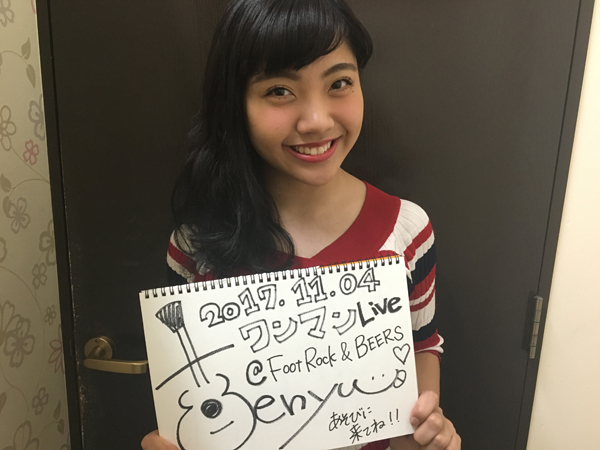 2017.11.04
ワンマンLive
@FOOT ROCK & BEERS
あそびに
来てね!!